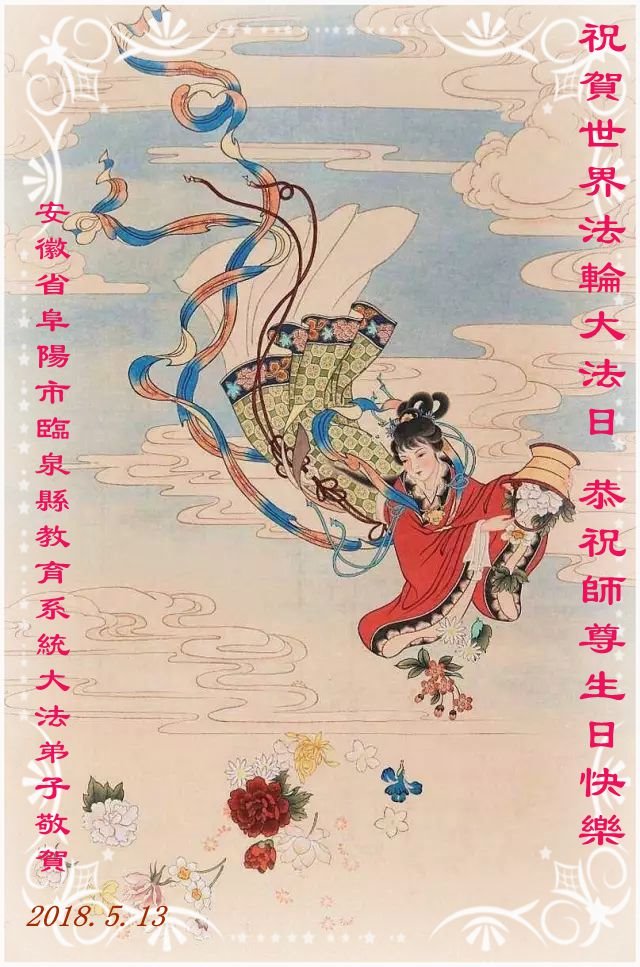 祝賀世界法輪大法日 恭祝師尊生日快樂
安徽省阜陽市臨泉縣教育系統大法弟子敬賀
2018.5.13